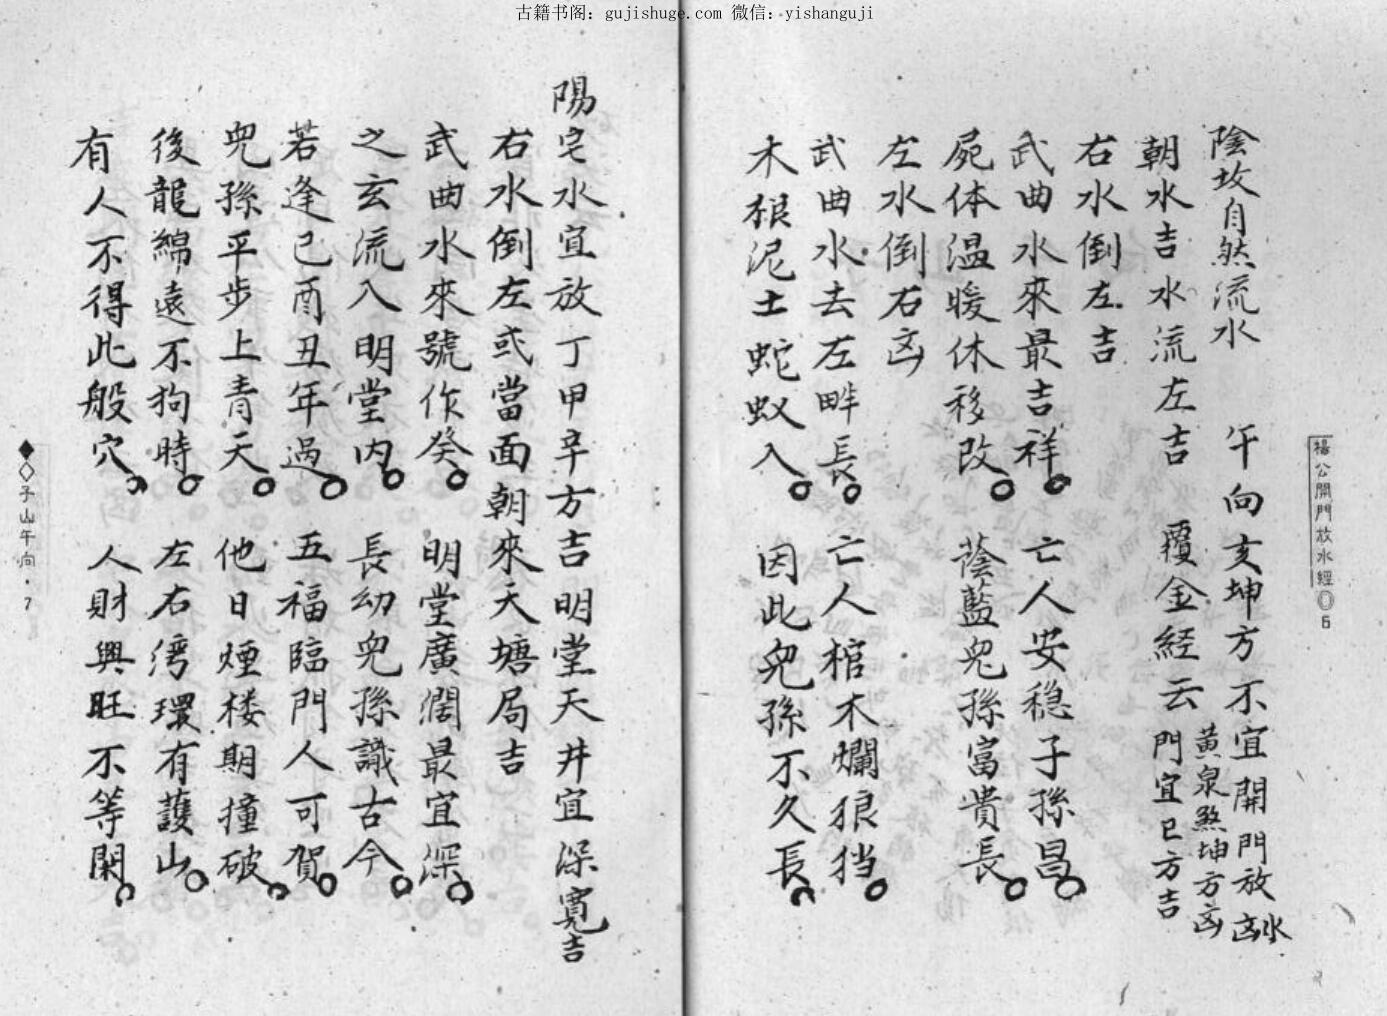 古籍书阁：gujishuge.com 微信：yishanguji
楊公開門放水經 6
陰坟自然流水 午向亥坤方不宜開門放水凶
黄泉煞坤方凶
朝水吉水流左吉 覆金経云門宜巳方吉
右水倒左吉
武曲水來最吉祥 亡人安穏子孫昌
屍体温暖休移改 蔭藍兒孫富貴長
左水倒右凶
武曲水去左畔長 亡人棺木爛狼挡
木根泥土蛇蚁入 因此兒孫不久長
陽宅水宜放丁甲辛方吉明堂天井宜深寬吉
右水倒左或當面朝來天塘局吉
武曲水來號作癸 明堂廣濶最宜深
之玄流入明堂内 長幼兒孫識古今
若逢己酉丑年過 五福臨門人可賀
兒孫平步上青天 他日煙楼期撞破
後龍綿遠不拘時 左右湾環有護山
有人不得此般穴 人財興旺不等閑
子山午向·7